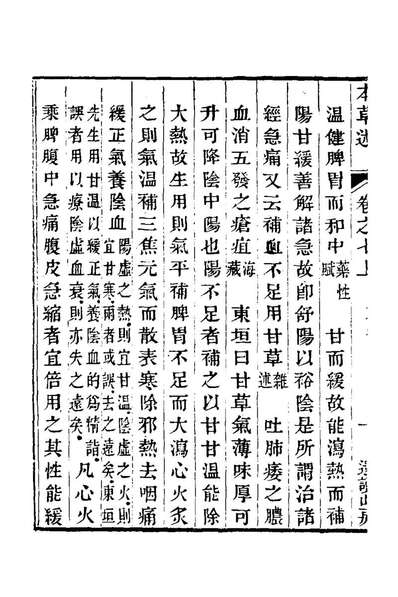 本草述 卷之七上
溫健脾胃而和中藥性賦 甘而緩故能瀉熱而補
陽甘緩善解諸急故卽舒陽以裕陰是所謂治諸
經急痛又云補血不足用甘草雜述 吐肺痿之膿
血消五發之瘡疽海藏 東垣曰甘草氣薄味厚可
升可降陰中陽也陽不足者補之以甘甘溫能除
大熱故生用則氣平補脾胃不足而大瀉心火炙
之則氣溫補三焦元氣而散表寒除邪熱去咽痛
緩正氣養陰血陽虛之熱則宜甘溫陰虛之火則宜甘寒兩者或誤去之遠矣東垣
先生用甘溫以緩正氣養陰血的爲精詣誤者用以療陰虛血衰則亦失之遠矣 凡心火
乘脾腹中急痛腹皮急縮者宜倍用之其性能緩